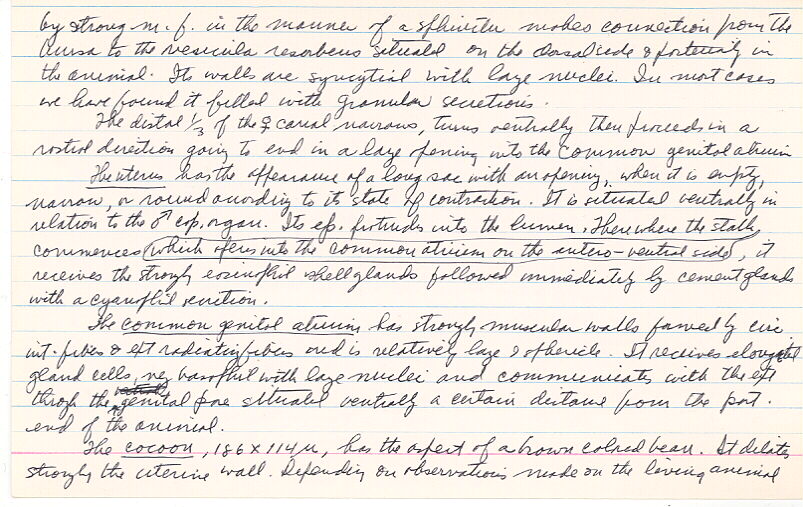 by strong m. f. in the manner of a sphincter makes connection from the
bursa to the vesicula resorbens situated on the dorsal side & posteriorly in
the animal. Its walls are syncytial with large nuclei. In most cases
we have found it filled with granular secretions.
The distal 1/3 of the ♀ canal narrows, turns ventrally then proceeds in a
rostral direction going to end in a large opening into the common genital atrium
The uterus has the appearance of a long sac with an opening, when it is empty,
narrow, or round according to its state of contraction. It is situated ventrally in
relation to the ♂ cop. organ. Its ep. protrudes into the lumen. There where the stalk
commences (which opens into the common atrium on the antero-ventral side), it
receives the strongly eosinophil shell glands followed immediately by cement glands
with a cyanophil secretion.
The common genital atrium has strongly muscular walls formed by circ
int. fibers & ext radiating fibers and is relatively large & spherical. It receives elongated
gland cells, very basophil with large nuclei and communicates with the ext
through the genital pore situated ventrally a certain distance from the post.
end of the animal.
The cocoon, 186 x 114 µ, has the aspect of a brown colored bean. It dilates
strongly the uterine wall. Depending on observations made on the living animal